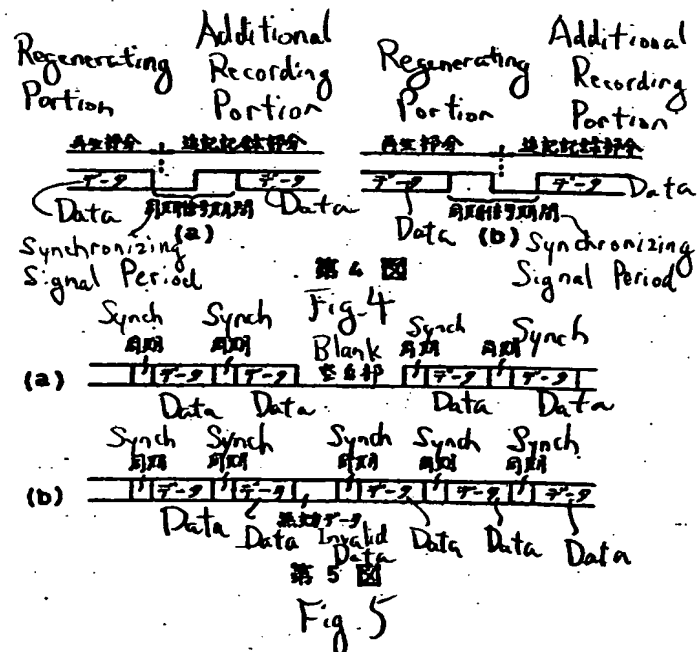 Regenerating Portion
Additional Recording Portion
Regenerating Portion
Additional Recording Portion
再生部分 追記記録部分 再生部分 追記記録部分
データ データ データ データ
Data Data Data Data
同期信号期間 同期信号期間
(a) (b)
Synchronizing Signal Period
Synchronizing Signal Period
第4図
Fig. 4
Synch Synch Blank Synch Synch
同期 同期 空白部 同期 同期
(a) データ データ データ データ
Data Data Data Data
Synch Synch Synch Synch Synch
同期 同期 同期 同期 同期
(b) データ データ データ データ データ
無効データ
Data Data Invalid Data Data Data Data
第5図
Fig. 5